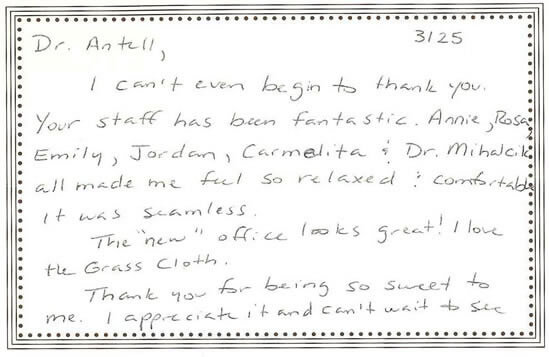 Dr. Antell, 3125
I can't even begin to thank you.
Your staff has been fantastic. Annie, Rosa,
Emily, Jordan, Carmelita & Dr. Mihalcik
all made me feel so relaxed & comfortable
it was seamless.
The "new" office looks great! I love
the Grass Cloth.
Thank you for being so sweet to
me. I appreciate it and can't wait to see